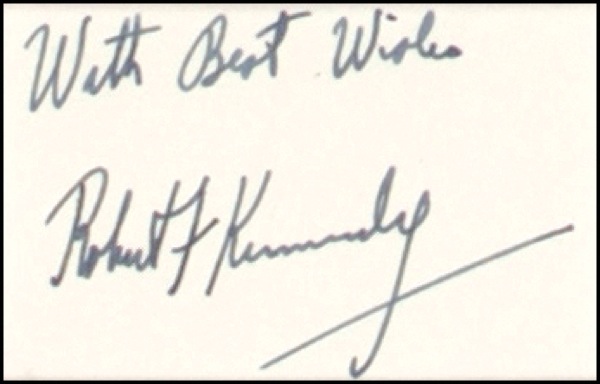 With Best Wishes
Robert F Kennedy